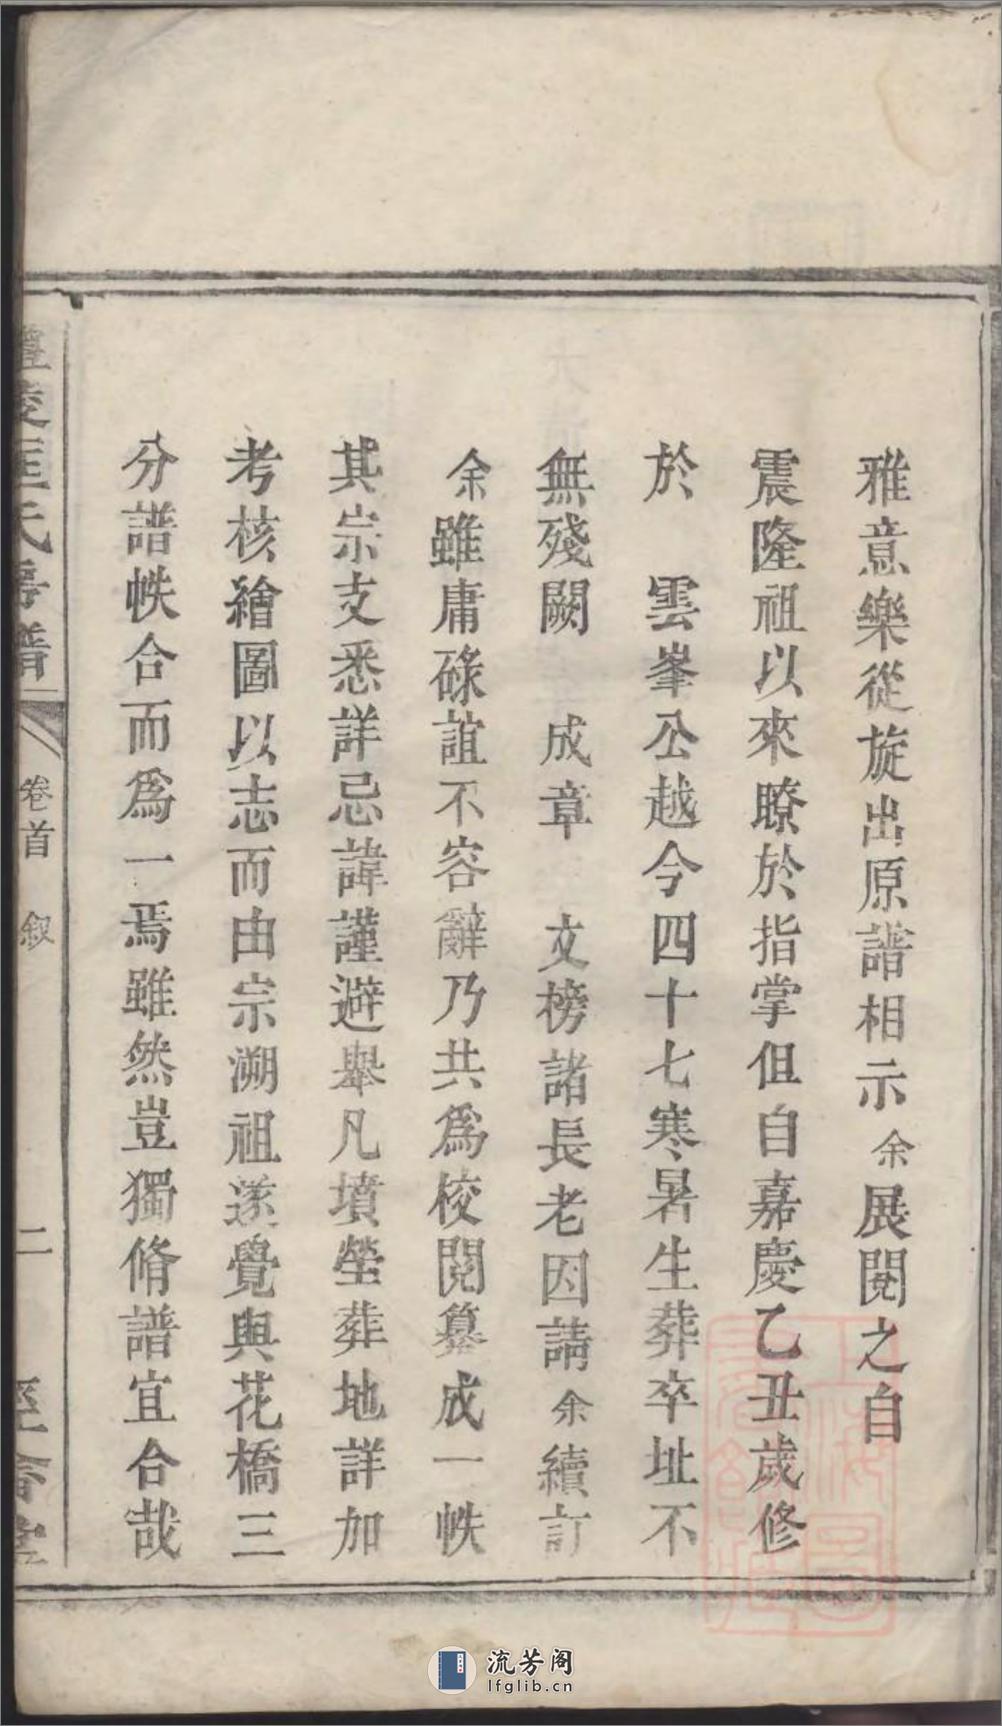 雅意樂從旋出原譜相示余展閱之自
震隆祖以來瞭於指掌但自嘉慶乙丑歲修
於　雲峯公越今四十七寒暑生葬卒址不
無殘闕　成章　文榜諸長老因請余續訂
余雖庸碌誼不容辭乃共爲校閱纂成一帙
其宗支悉詳忌諱謹避舉凡墳塋葬地詳加
考核繪圖以志而由宗溯祖遂覺與花橋三
分譜帙合而爲一焉雖然豈獨脩譜宜合哉
陵匡氏房譜
卷首　叙
二
流芳阁
lfglib.cn